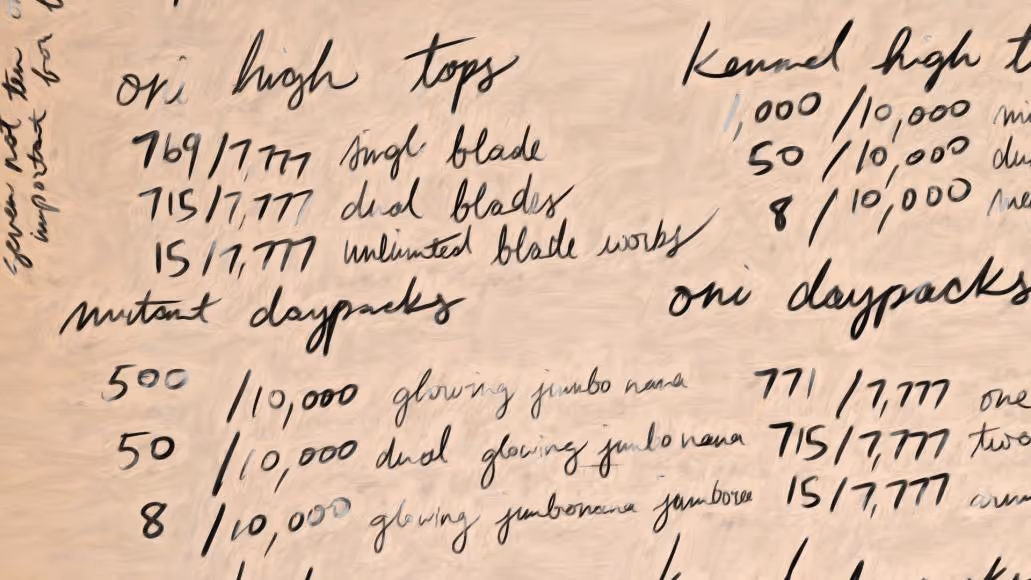 seven not ten
important for
ori high tops
769/7,777 singl blade
715/7,777 dual blades
15/7,777 unlimited blade works
kennel high t
1,000 /10,000
50 /10,000
8 /10,000
mutant daypacks
500 /10,000 glowing jumbo nana
50 /10,000 dual glowing jumbo nana
8 /10,000 glowing jumbonana jamboree
oni daypacks
771 /7,777 one
715/7,777 two
15/7,777